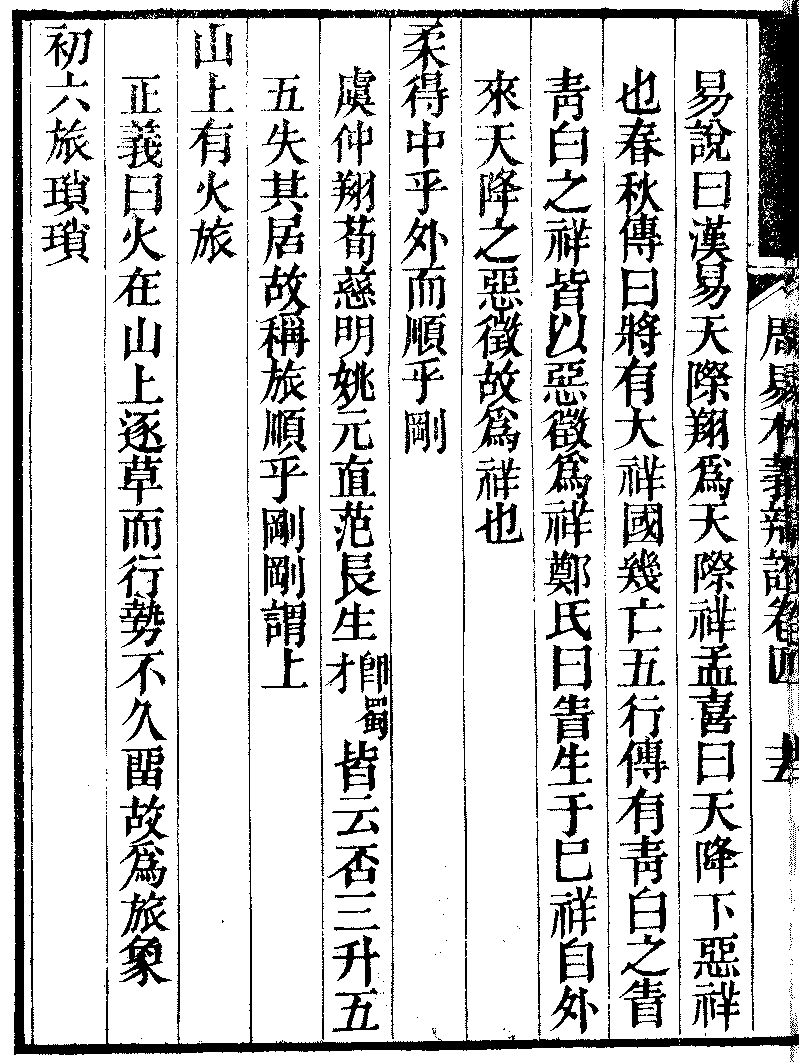 周易本義辨證卷四
易說曰漢易天際翔爲天際祥孟喜曰天降下惡祥
也春秋傳曰將有大祥國幾亡五行傳有靑白之眚
靑白之祥皆以惡徵爲祥鄭氏曰眚生于巳祥自外
來天降之惡徵故爲祥也
柔得中乎外而順乎剛
虞仲翔荀慈明姚元直范長生卽蜀才皆云否三升五
五失其居故稱旅順乎剛剛謂上
山上有火旅
正義曰火在山上逐草而行勢不久畱故爲旅象
初六旅瑣瑣